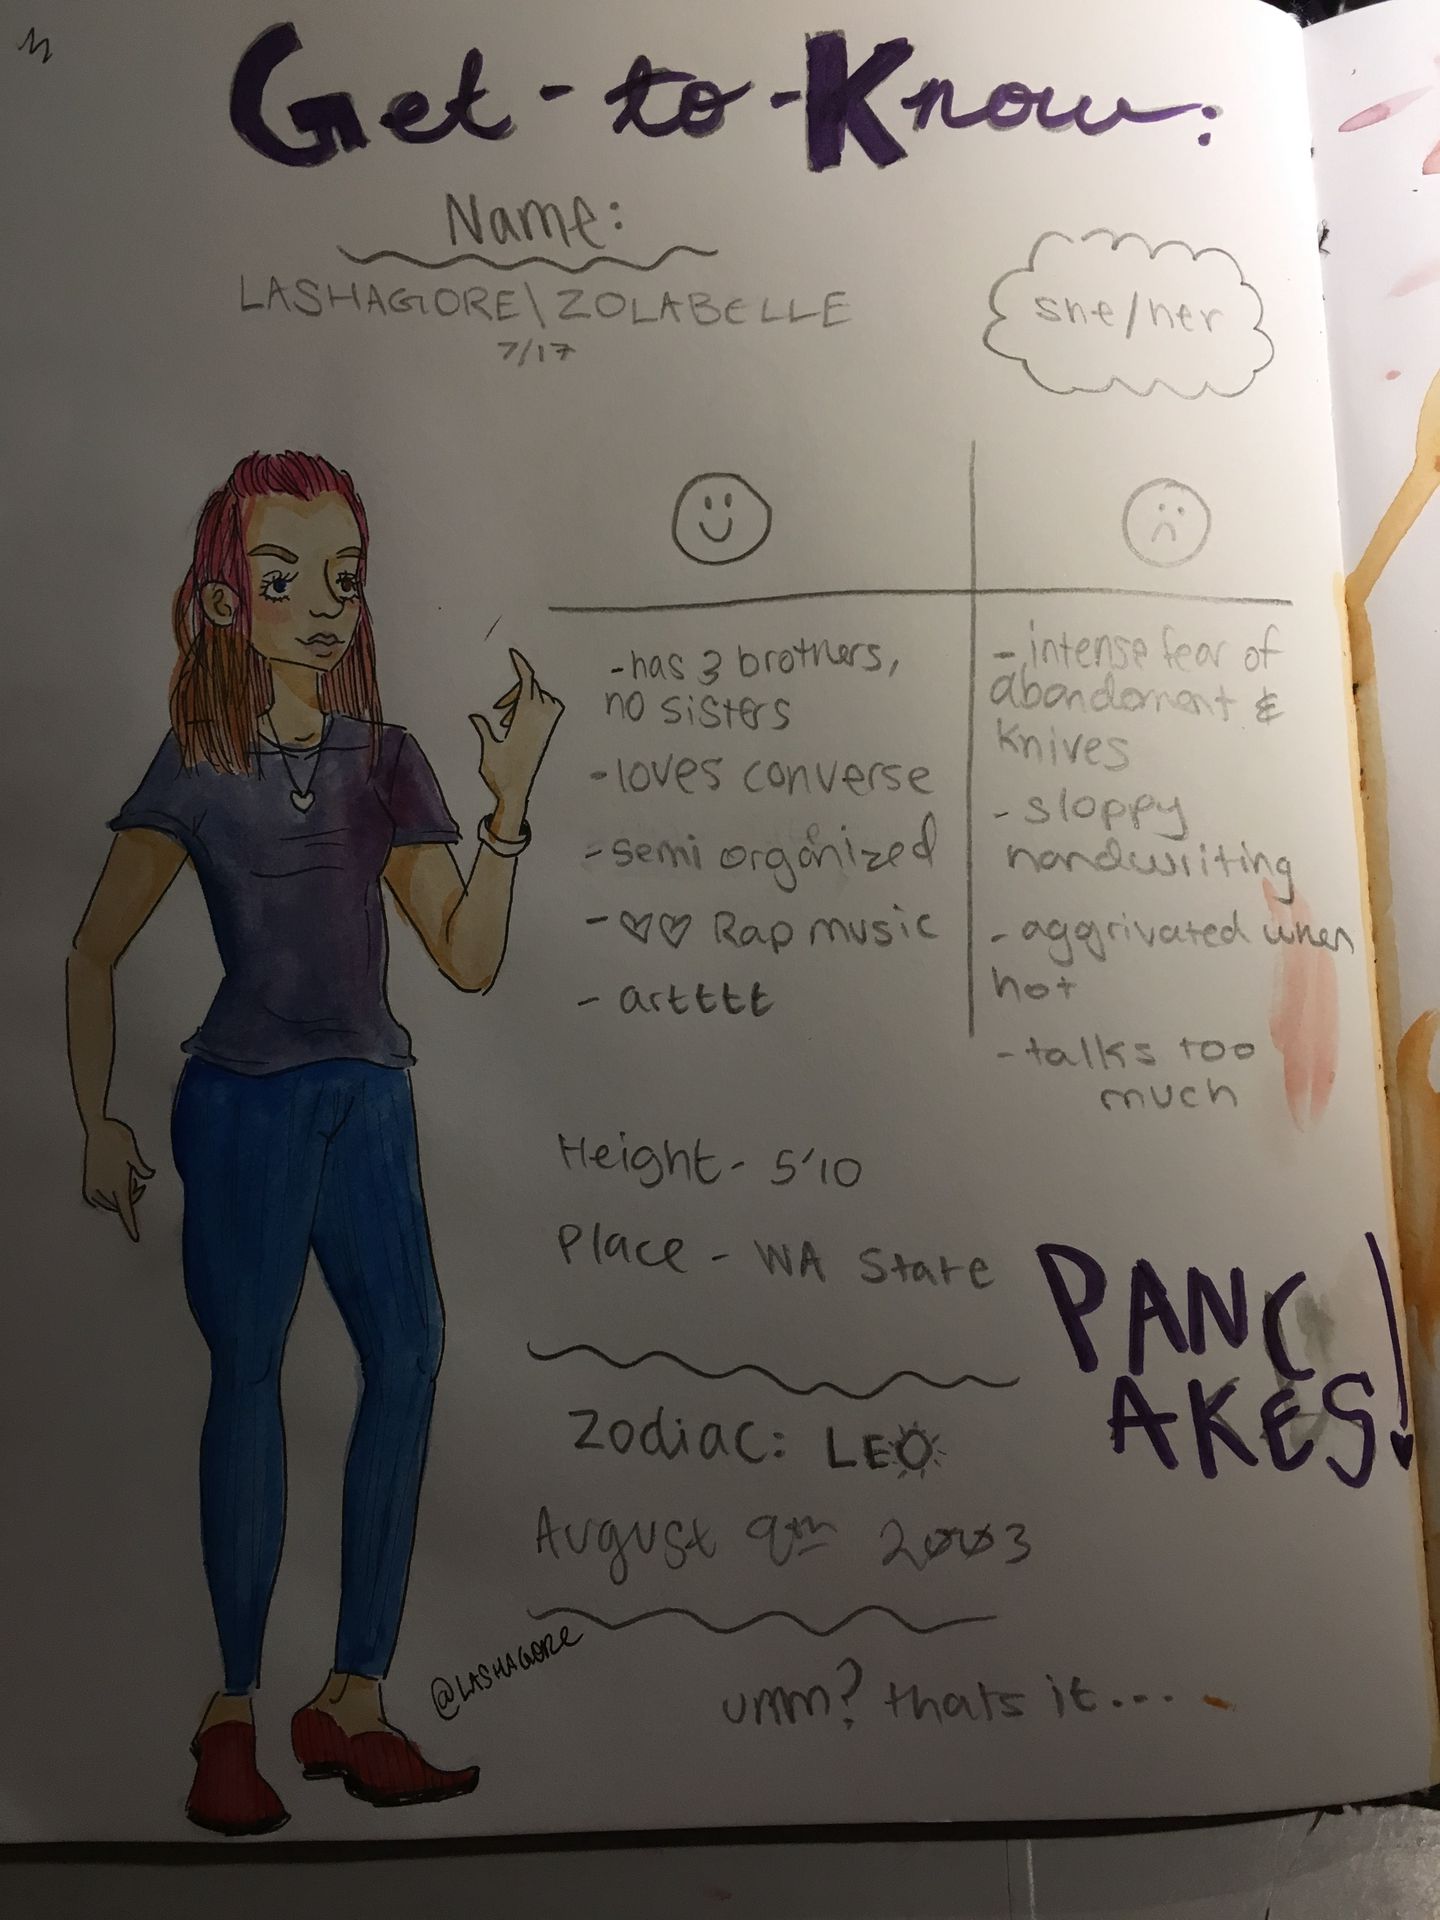 Get-to-Know:
Name:
LASHAGORE\ZOLABELLE
7/17
she/her
-has 3 brothers,
no sisters
-loves converse
-semi organized
-♡♡ Rap music
- artttt
- intense fear of
abandoment &
knives
- sloppy
handwriting
- aggrivated when
hot
-talks too
much
Height- 5'10
Place - WA State
PANC
AKES!
Zodiac: LEO
August 9th 2003
@LASHAGORE
umm? thats it....